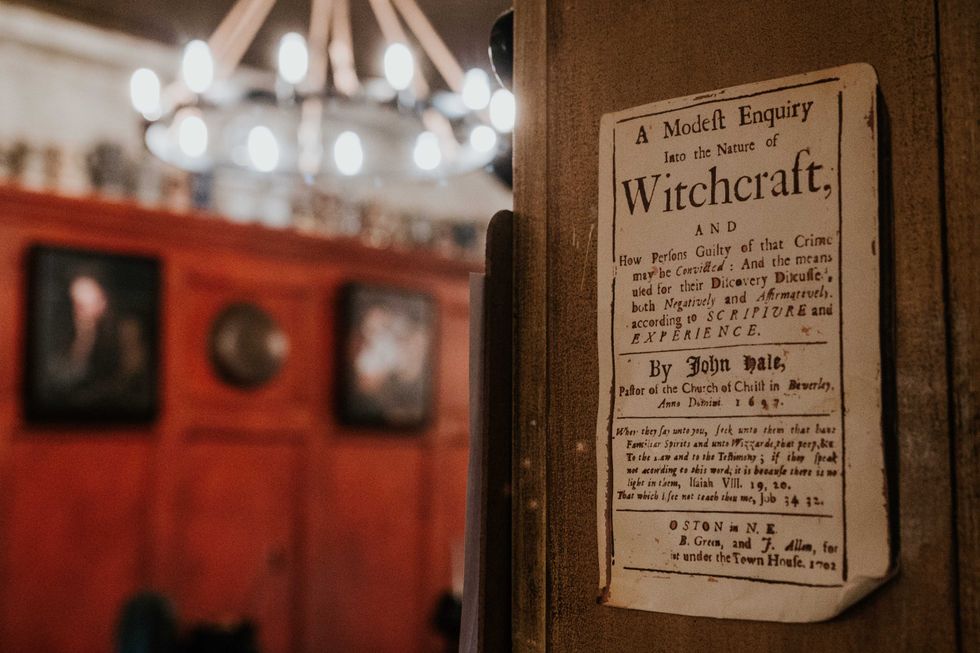 A Modeſt Enquiry
Into the Nature of
Witchcraft,
AND
How Perſons Guilty of that Crime
may be Convicted: And the means
uſed for their Diſcovery Diſcuſſed,
both Negatively and Affirmatively,
according to SCRIPTURE and
EXPERIENCE.
By John Hale,
Paſtor of the Church of Chriſt in Beverley,
Anno Domini. 1697.
When they ſay unto you, ſeek unto them that have
Familiar Spirits and unto Wizzards, that peep, &c
To the Law and to the Teſtimony; if they ſpeak
not according to this word, it is becauſe there is no
light in them, Iſaiah VIII. 19, 20.
That which I ſee not teach thou me, Job 34 32.
OSTON in N. E.
B. Green, and J. Allen, for
under the Town Houſe. 1702